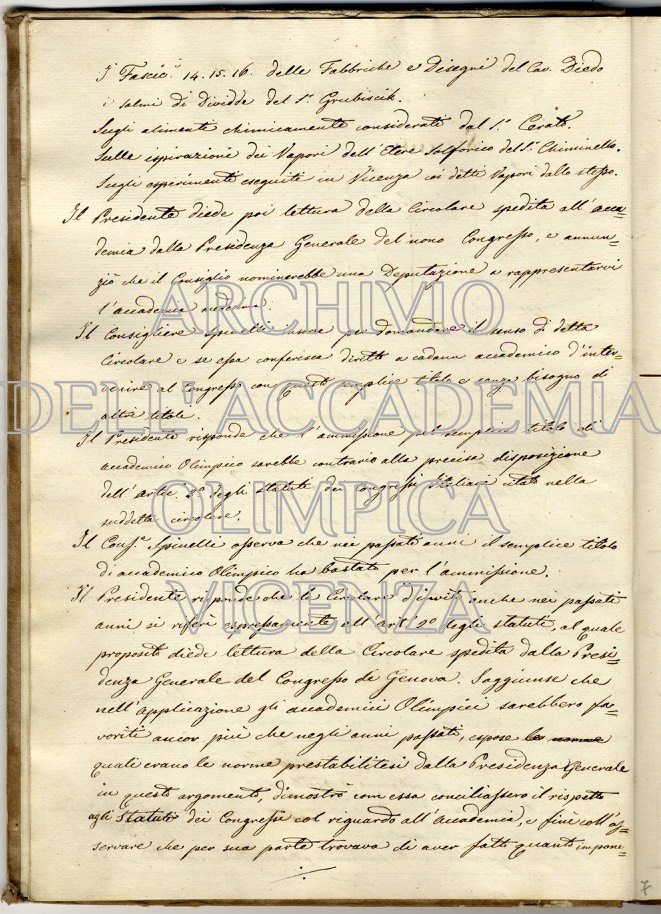 I Fascic.i 14. 15. 16. delle Fabbriche e Disegni del Cav. Diedo
i salmi di Davidde del S.r Grubiscik.
Sugli alimenti chimicamente considerati del S.r Cerato.
Sulle espirazioni dei Vapori dell'Etere Solforico del S.r Chiminello.
Sugli esperimenti eseguiti in Vicenza coi detti Vapori dello stesso.
Il Presidente diede poi lettura della Circolare spedita all'acca=
demia dalla Presidenza Generale del nono Congresso, e annun=
ziò che il Consiglio nominerebbe una Deputazione a rappresentarvi
l'accademia medesima.
Il Consigliere Spinelli per domandare il senso di detta
Circolare e se essa conferisca diritto a cadaun accademico d'inter=
venire al Congresso con questo semplice titolo e senza bisogno di
altri titoli.
Il Presidente risponde che l'ammissione pel semplice titolo di
accademico Olimpico sarebbe contrario alla precisa disposizione
dell'Artic. 2.o degli Statuti dei Congressi Italiani citato nella
suddetta circolare.
Il Cons.e Spinelli osserva che nei passati anni il semplice titolo
di accademico Olimpico ha bastato per l'ammissione.
Il Presidente risponde che le Circolari d'invito anche nei passati
anni si riferì espressamente all'art.o 2.o degli statuti, al quale
proposito diede lettura della Circolare spedita dalla Presi=
denza Generale del Congresso di Genova. Soggiunse che
nell'applicazione gli accademici Olimpici sarebbero fa=
voriti ancor più che negli anni passati, espose le norme
quali erano le norme prestabilitesi dalla Presidenza Generale
in questo argomento, dimostrò com'essa conciliassero il rispetto
agli Statuti dei Congressi col riguardo all'Accademia, e finì coll'os=
servare che per sua parte trovava di aver fatto quanto impone=
7
ARCHIVIO
DELL'ACCADEMIA
OLIMPICA
VICENZA